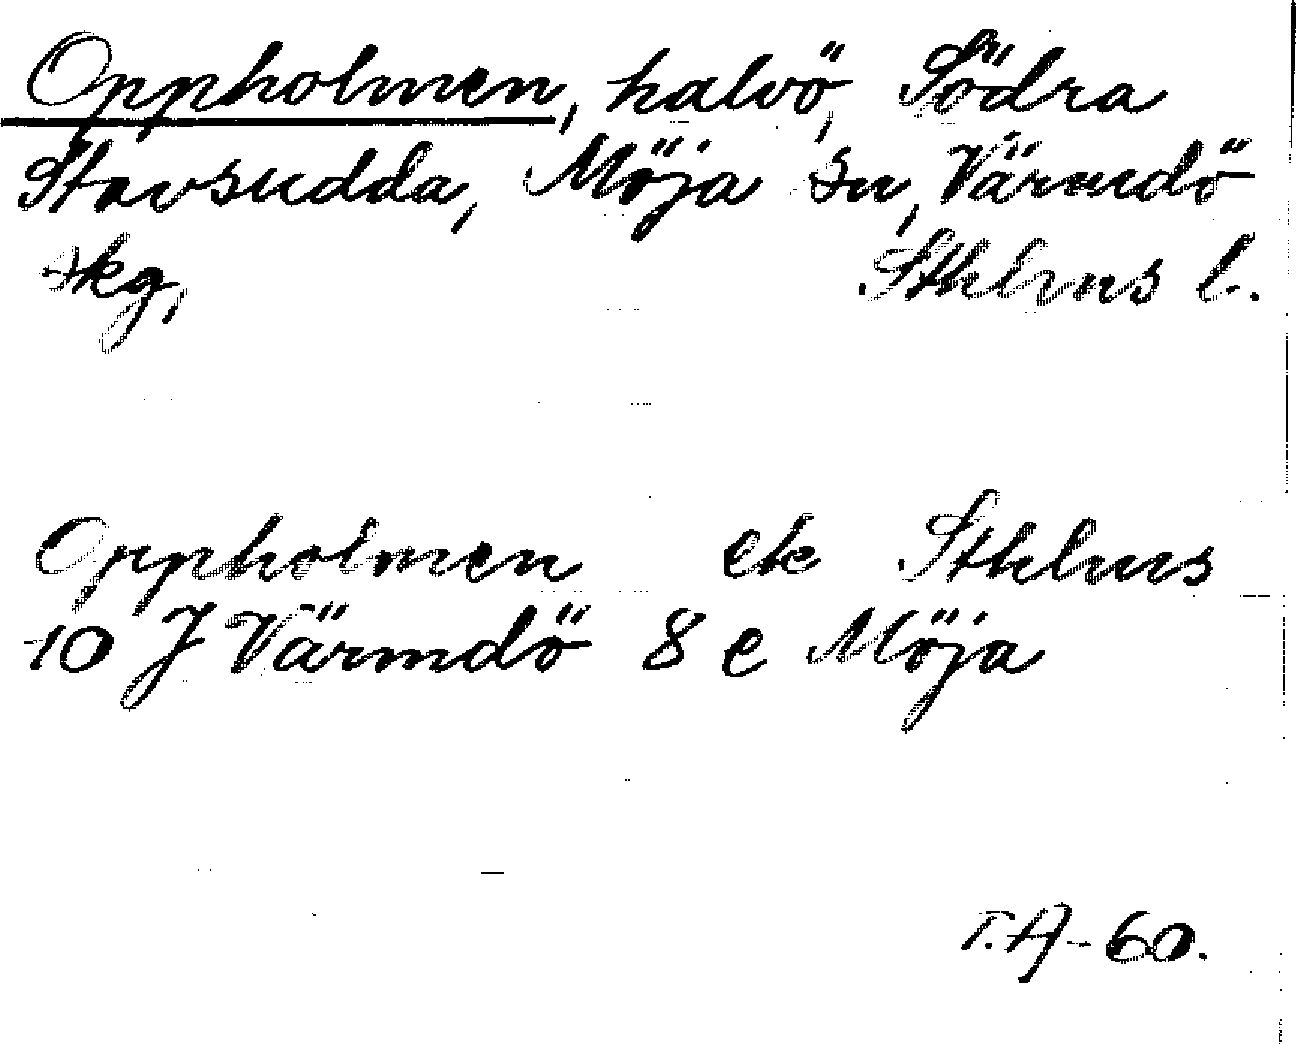 Oppholmen, halvö, Södra
Stavsudda, Möja sn, Värmdö
skg, Sthlms l.
Oppholmen ek Sthlms
10 J Värmdö 8 e Möja
T.A-60.